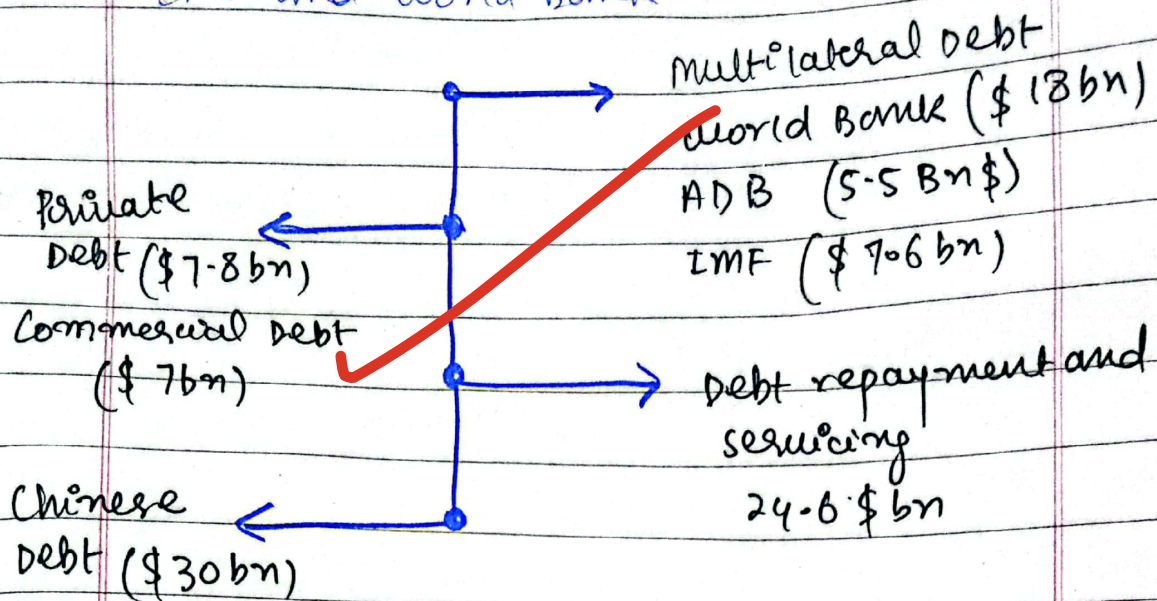 and World Bank
Multilateral Debt
World Bank ($ 18bn)
ADB (5.5 Bn $)
IMF ($ 7.6 bn)
Private
Debt ($7.8bn)
Commercial Debt
($ 7bn)
Debt repayment and
servicing
24.6 $ bn
Chinese
Debt ($30bn)